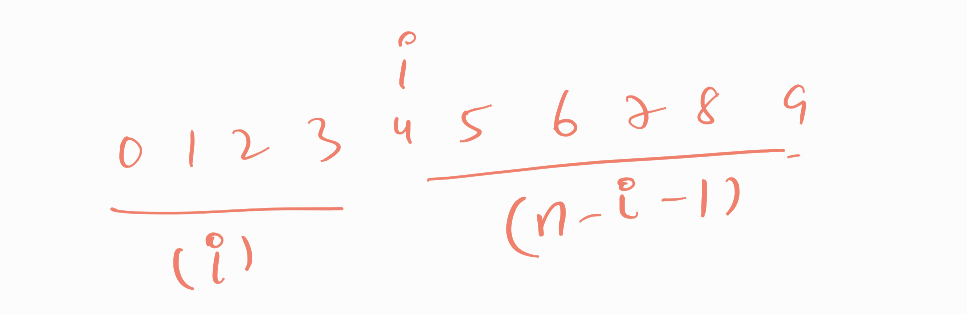 i
0 1 2 3 4 5 6 7 8 9
(i) (n-i-1)